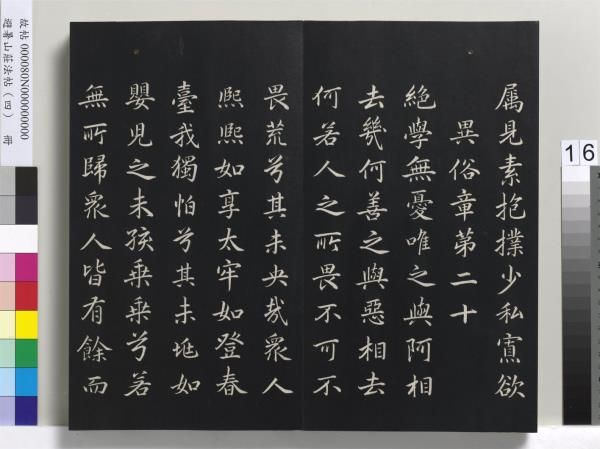 属見素抱撲少私寡欲
異俗章第二十
絶學無憂唯之與阿相
去幾何善之與惡相去
何若人之所畏不可不
畏荒兮其未央哉衆人
熈熈如享太牢如登春
臺我獨怕兮其未兆如
嬰兒之未孩乗乗兮若
無所歸衆人皆有餘而
故帖 000080N000000000
避暑山莊法帖（四） 冊
16